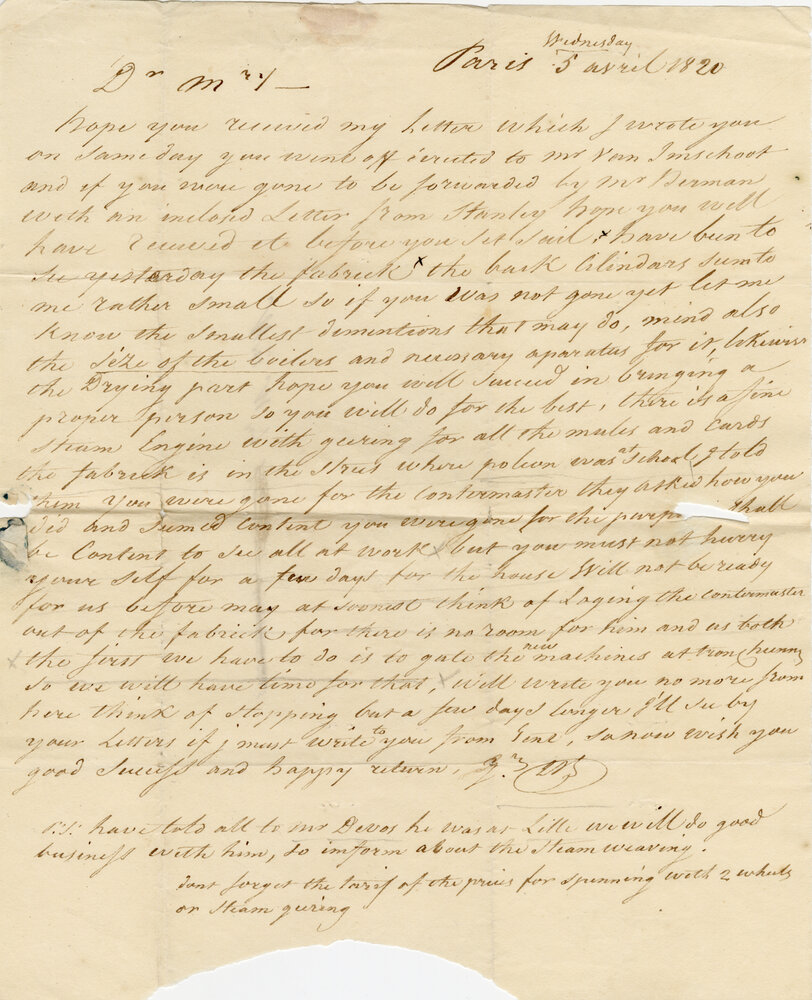 Wednesday
Paris 5 avril 1820
Dr Mry —
hope you received my Letter which I wrote you
on same day you went off derected to mr Van Imschoot
and if you were gone to be forwarded by Mr Herman
with an inclosed Letter from Stanley hope you will
have received it before you set sail, have been to
see yesterday the fabrick x the back Cilindars sum to
me rather small so if you was not gone yet let me
know the smallest dementions that may do, mind also
the size of the boilers and necessary aparatus for it, likewise
the Drying part hope you will succeed in bringing a
proper person so you will do for the best, there is a fine
Steam Engine with geering for all the mules and Cards
the fabrick is in the Strees where poleon was at School, I told
them you were gone for the Contermaster they asked how you
ded and sumed Content you were gone for the shall
be Content to see all at work but you must not hurry
your self for a few days for the house Will not be ready
for us before may at soonest think of Loging the contermaster
out of the fabrick for there is no room for him and us both
the first we have to do is to gate the new machines at tronchunny
so we will have time for that, will write you no more from
here think of stopping but a few days longer I'll see by
your Letters if j must write to you from Gent, so now wish you
good Success and happy return,
P.S: have told all to mr Devos he was at Lille we will do good
business with him, do imform about the Steam weaving.
dont forget the tarif of the pries for spunning with 2 whuls
or Steam geering